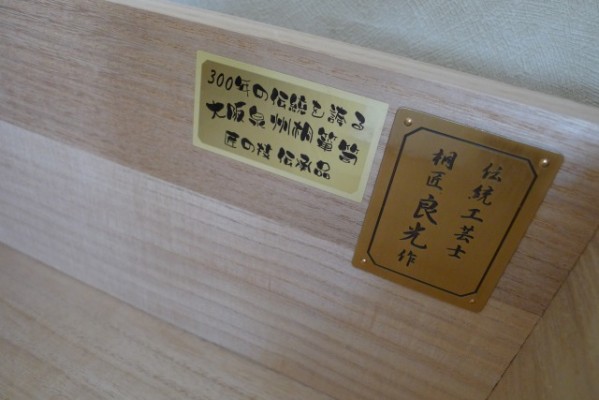 300年の伝統を誇る
大阪泉州桐簞笥
匠の技 伝承品
伝統工芸士
桐匠 良光作